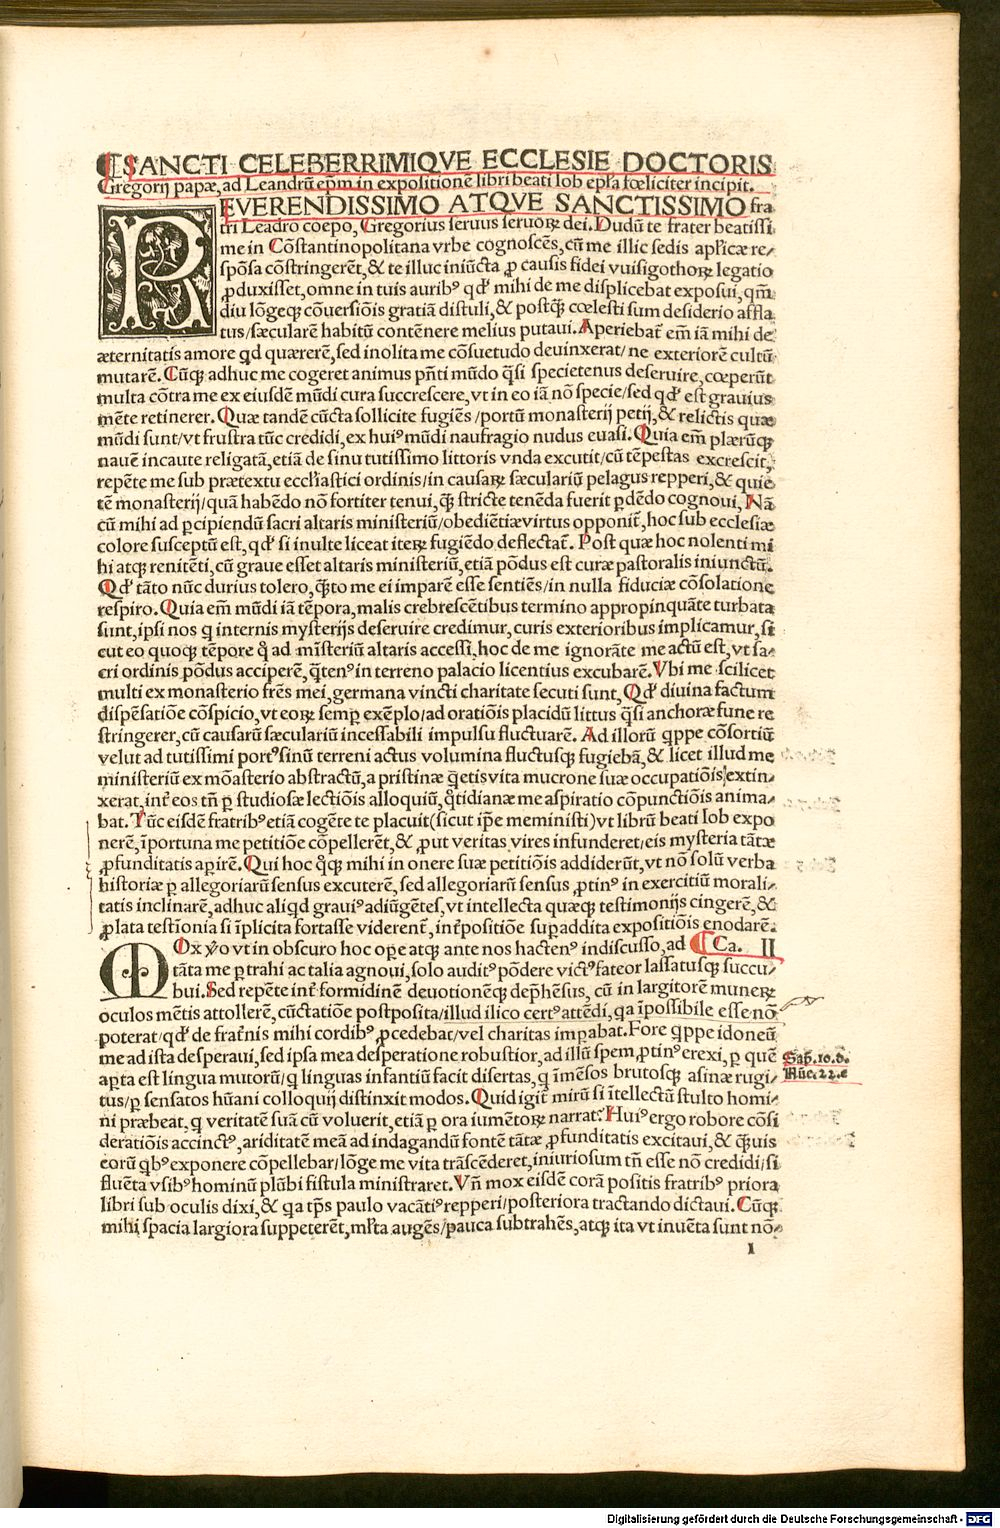 ¶SANCTI CELEBERRIMIQVE ECCLESIE DOCTORIS
Gregorij papæ, ad Leandrū ep̄m in expositionē libri beati Iob epl̄a fœliciter incipit.
REVERENDISSIMO ATQVE SANCTISSIMO fra
tri Leādro coepo, Gregorius seruus seruoꝝ dei. Dudū te frater beatissi
me in Cōstantinopolitana vrbe cognoscēs, cū me illic sedis apl̄icæ re⸗
spōsa cōstringerēt, & te illuc iniūcta ꝓ causis fidei vuisigothoꝝ legatio
ꝓduxisset, omne in tuis auribꝰ qđ mihi de me displicebat exposui, qm̄
diu lōgeqꝫ cōuersiōis gratiā distuli, & postqꝫ cœlesti sum desiderio affla
tus/sæcularē habitū contēnere melius putaui. Aperiebat̄ em̄ iā mihi de
æternitatis amore qd quærerē, sed inolita me cōsuetudo deuinxerat/ne exteriorē cultū
mutarē. Cūqꝫ adhuc me cogeret animus pn̄ti mūdo q̄si specietenus deseruire, cœperūt
multa cōtra me ex eiusdē mūdi cura succrescere, vt in eo iā nō specie/sed qđ est grauius
mēte retinerer. Quæ tandē cūcta sollicite fugiēs/portū monasterij petij, & relictis quæ
mūdi sunt/vt frustra tūc credidi, ex huiꝰ mūdi naufragio nudus euasi. Quia em̄ plærūqꝫ
nauē incaute religatā, etiā de sinu tutissimo littoris vnda excutit/cū tēpestas excrescit,
repēte me sub prætextu eccl̄iastici ordinis/in causaꝝ sæculariū pelagus repperi, & quie
tē monasterij/quā habēdo nō fortiter tenui, q̄ꝫ stricte tenēda fuerit ꝑdēdo cognoui, Nā
cū mihi ad ꝑcipiendū sacri altaris ministeriū/obediētiæ virtus opponit̄, hoc sub ecclesiæ
colore susceptū est, qđ si inulte liceat iteꝝ fugiēdo deflectat̄. Post quæ hoc nolenti mi
hi atqꝫ renitēti, cū graue esset altaris ministeriū, etiā pōdus est curæ pastoralis iniunctū.
Qđ tāto nūc durius tolero, q̄ꝫto me ei imparē esse sentiēs/in nulla fiduciæ cōsolatione
respiro. Quia em̄ mūdi iā tēpora, malis crebrescētibus termino appropinquāte turbata
sunt, ipsi nos q internis mysterijs deseruire credimur, curis exterioribus implicamur, si
cut eo quoqꝫ tēpore q̊ ad mīsteriū altaris accessi, hoc de me ignorāte me actū est, vt sa⸗
cri ordinis pōdus acciperē, q̄tenꝰ in terreno palacio licentius excubarē. Vbi me scilicet
multi ex monasterio frēs mei, germana vincti charitate secuti sunt, Qđ diuina factum
dispēsatiōe cōspicio, vt eoꝝ semꝑ exēplo/ad oratiōis placidū littus q̄si anchoræ fune re
stringerer, cū causarū sæculariū incessabili impulsu fluctuarē. Ad illorū qppe cōsortiū
velut ad tutissimi portꝰ sinū terreni actus volumina fluctusqꝫ fugiebā, & licet illud me
ministeriū ex mōasterio abstractū, a pristinæ q̄etis vita mucrone suæ occupatiōis/extin⸗
xerat, int̄ eos tn̄ ꝑ studiosæ lectiōis alloquiū, q̊tidianæ me aspiratio cōpunctiōis anima⸗
bat. Tūc eisdē fratribꝰ etiā cogēte te placuit (sicut ip̄e meministi) vt librū beati Iob expo
nerē, īportuna me petitiōe cōpellerēt, & ꝓut veritas vires infunderet/eis mysteria tātæ
ꝓfunditatis aꝑirē. Qui hoc q̊qꝫ mihi in onere suæ petitiōis addiderūt, vt nō solū verba
historiæ ꝑ allegoriarū sensus excuterē, sed allegoriarū sensus ꝓtinꝰ in exercitiū morali⸗
tatis inclinarē, adhuc aliqd grauiꝰ adiūgētes, vt intellecta quæqꝫ testimonijs cingerē, &
ꝓlata testīonia si īplicita fortasse viderent̄, int̄positiōe suꝑaddita expositiōis enodarē.
MOx v̊o vt in obscuro hoc oꝑe atqꝫ ante nos hactenꝰ indiscusso, ad ¶Ca. II
tāta me ꝑtrahi ac talia agnoui, solo auditꝰ pōdere victꝰ fateor lassatusqꝫ succu⸗
bui. Sed repēte int̄ formidinē deuotionēqꝫ dep̄hēsus, cū in largitorē muneꝝ
oculos mētis attollerē, cūctatiōe postposita/illud ilico certꝰ attēdi, qa īpossibile esse nō
poterat/qđ de frat̄nis mihi cordibꝰ ꝓcedebat/vel charitas imꝑabat. Fore qppe idoneū
me ad ista desperaui, sed ipsa mea desperatione robustior, ad illū spem ꝓtinꝰ erexi, ꝑ quē
aꝑta est lingua mutorū/q linguas infantiū facit disertas, q īmēsos brutosqꝫ asinæ rugi⸗
tus/ꝑ sensatos hūani colloquij distinxit modos. Quid igit̄ mirū si ītellectū stulto homi⸗
ni præbeat, q veritatē suā cū voluerit, etiā ꝑ ora iumētoꝝ narrat: Huiꝰ ergo robore cōsi
deratiōis accinctꝰ, ariditatē meā ad indagandū fontē tātæ ꝓfunditatis excitaui, & q̄ꝫuis
eorū qbꝰ exponere cōpellebar/lōge me vita trāscēderet, iniuriosum tn̄ esse nō credidi/si
fluēta vsibꝰ hominū plūbi fistula ministraret. Vn̄ mox eisdē corā positis fratribꝰ priora
libri sub oculis dixi, & qa tp̄s paulo vacātiꝰ repperi/posteriora tractando dictaui. Cūqꝫ
mihi spacia largiora suppeterēt, ml̄ta augēs/pauca subtrahēs, atqꝫ ita vt inuēta sunt nō⸗
Sap. 10. d.
Nūe. 22. e
1
Digitalisierung gefördert durch die Deutsche Forschungsgemeinschaft - DFG